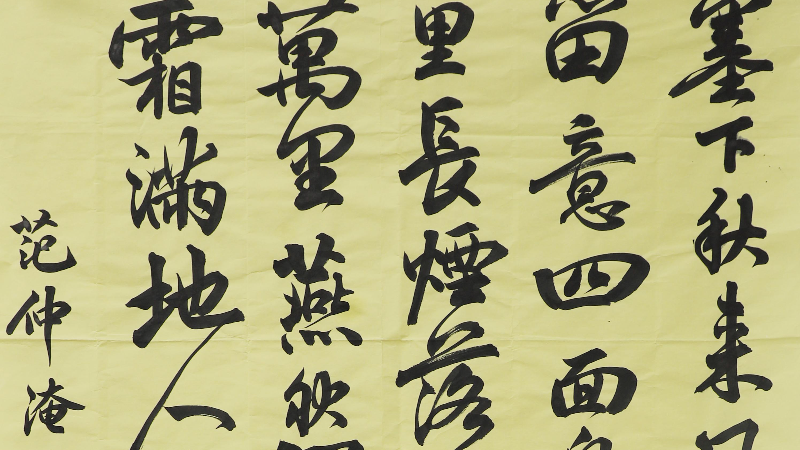 塞下秋来
留意四面
里長煙落
萬里燕
霜滿地人
范仲淹